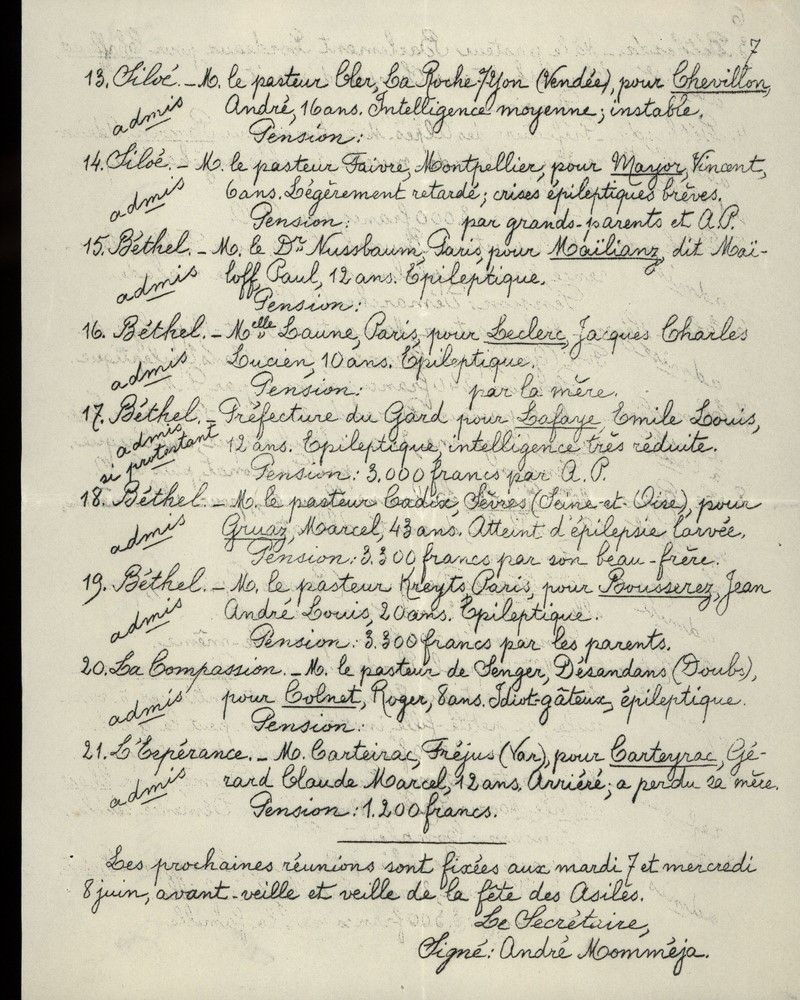 7
13. Siloé. – M. le pasteur Cler, La Roche-s/Yon (Vendée), pour Chevillon,
admis
André, 16 ans. Intelligence moyenne; instable.
Pension:
14. Siloé. – M. le pasteur Faivre, Montpellier, pour Mayor, Vincent,
admis
6 ans. Légèrement retardé; crises épileptiques brèves.
Pension: par grands-parents et A.P.
15. Béthel. – M. le Dr Nussbaum, Paris, pour Maïlianz, dit Maï-
admis
loff, Paul, 12 ans. Epileptique.
Pension:
16. Béthel. – Melle Laune, Paris, pour Leclerc, Jacques Charles
admis
Lucien, 10 ans. Epileptique.
Pension: par la mère.
17. Béthel. – Préfecture du Gard pour Lafaye, Emile Louis,
admis
si protestant
12 ans. Epileptique, intelligence très réduite.
Pension: 3.000 francs par A.P.
18. Béthel. – M. le pasteur Cadix, Sèvres (Seine-et-Oise), pour
admis
Gruaz, Marcel, 43 ans. Atteint d'épilepsie larvée.
Pension: 3.300 francs par son beau-frère.
19. Béthel. – M. le pasteur Kreyts, Paris, pour Bousserez, Jean
admis
André Louis, 20 ans. Epileptique.
Pension: 3.300 francs par les parents.
20. La Compassion. – M. le pasteur de Senger, Désandans (Doubs),
admis
pour Colnet, Roger, 8 ans. Idiot-gâteux, épileptique.
Pension:
21. L'Espérance. – M. Carteirac, Fréjus (Var), pour Carteyrac, Gé-
admis
rard Claude Marcel, 12 ans. Arriéré; a perdu sa mère.
Pension: 1.200 francs.
Les prochaines réunions sont fixées aux mardi 7 et mercredi
8 juin, avant-veille et veille de la fête des Asiles.
Le Secrétaire,
Signé: André Momméja.